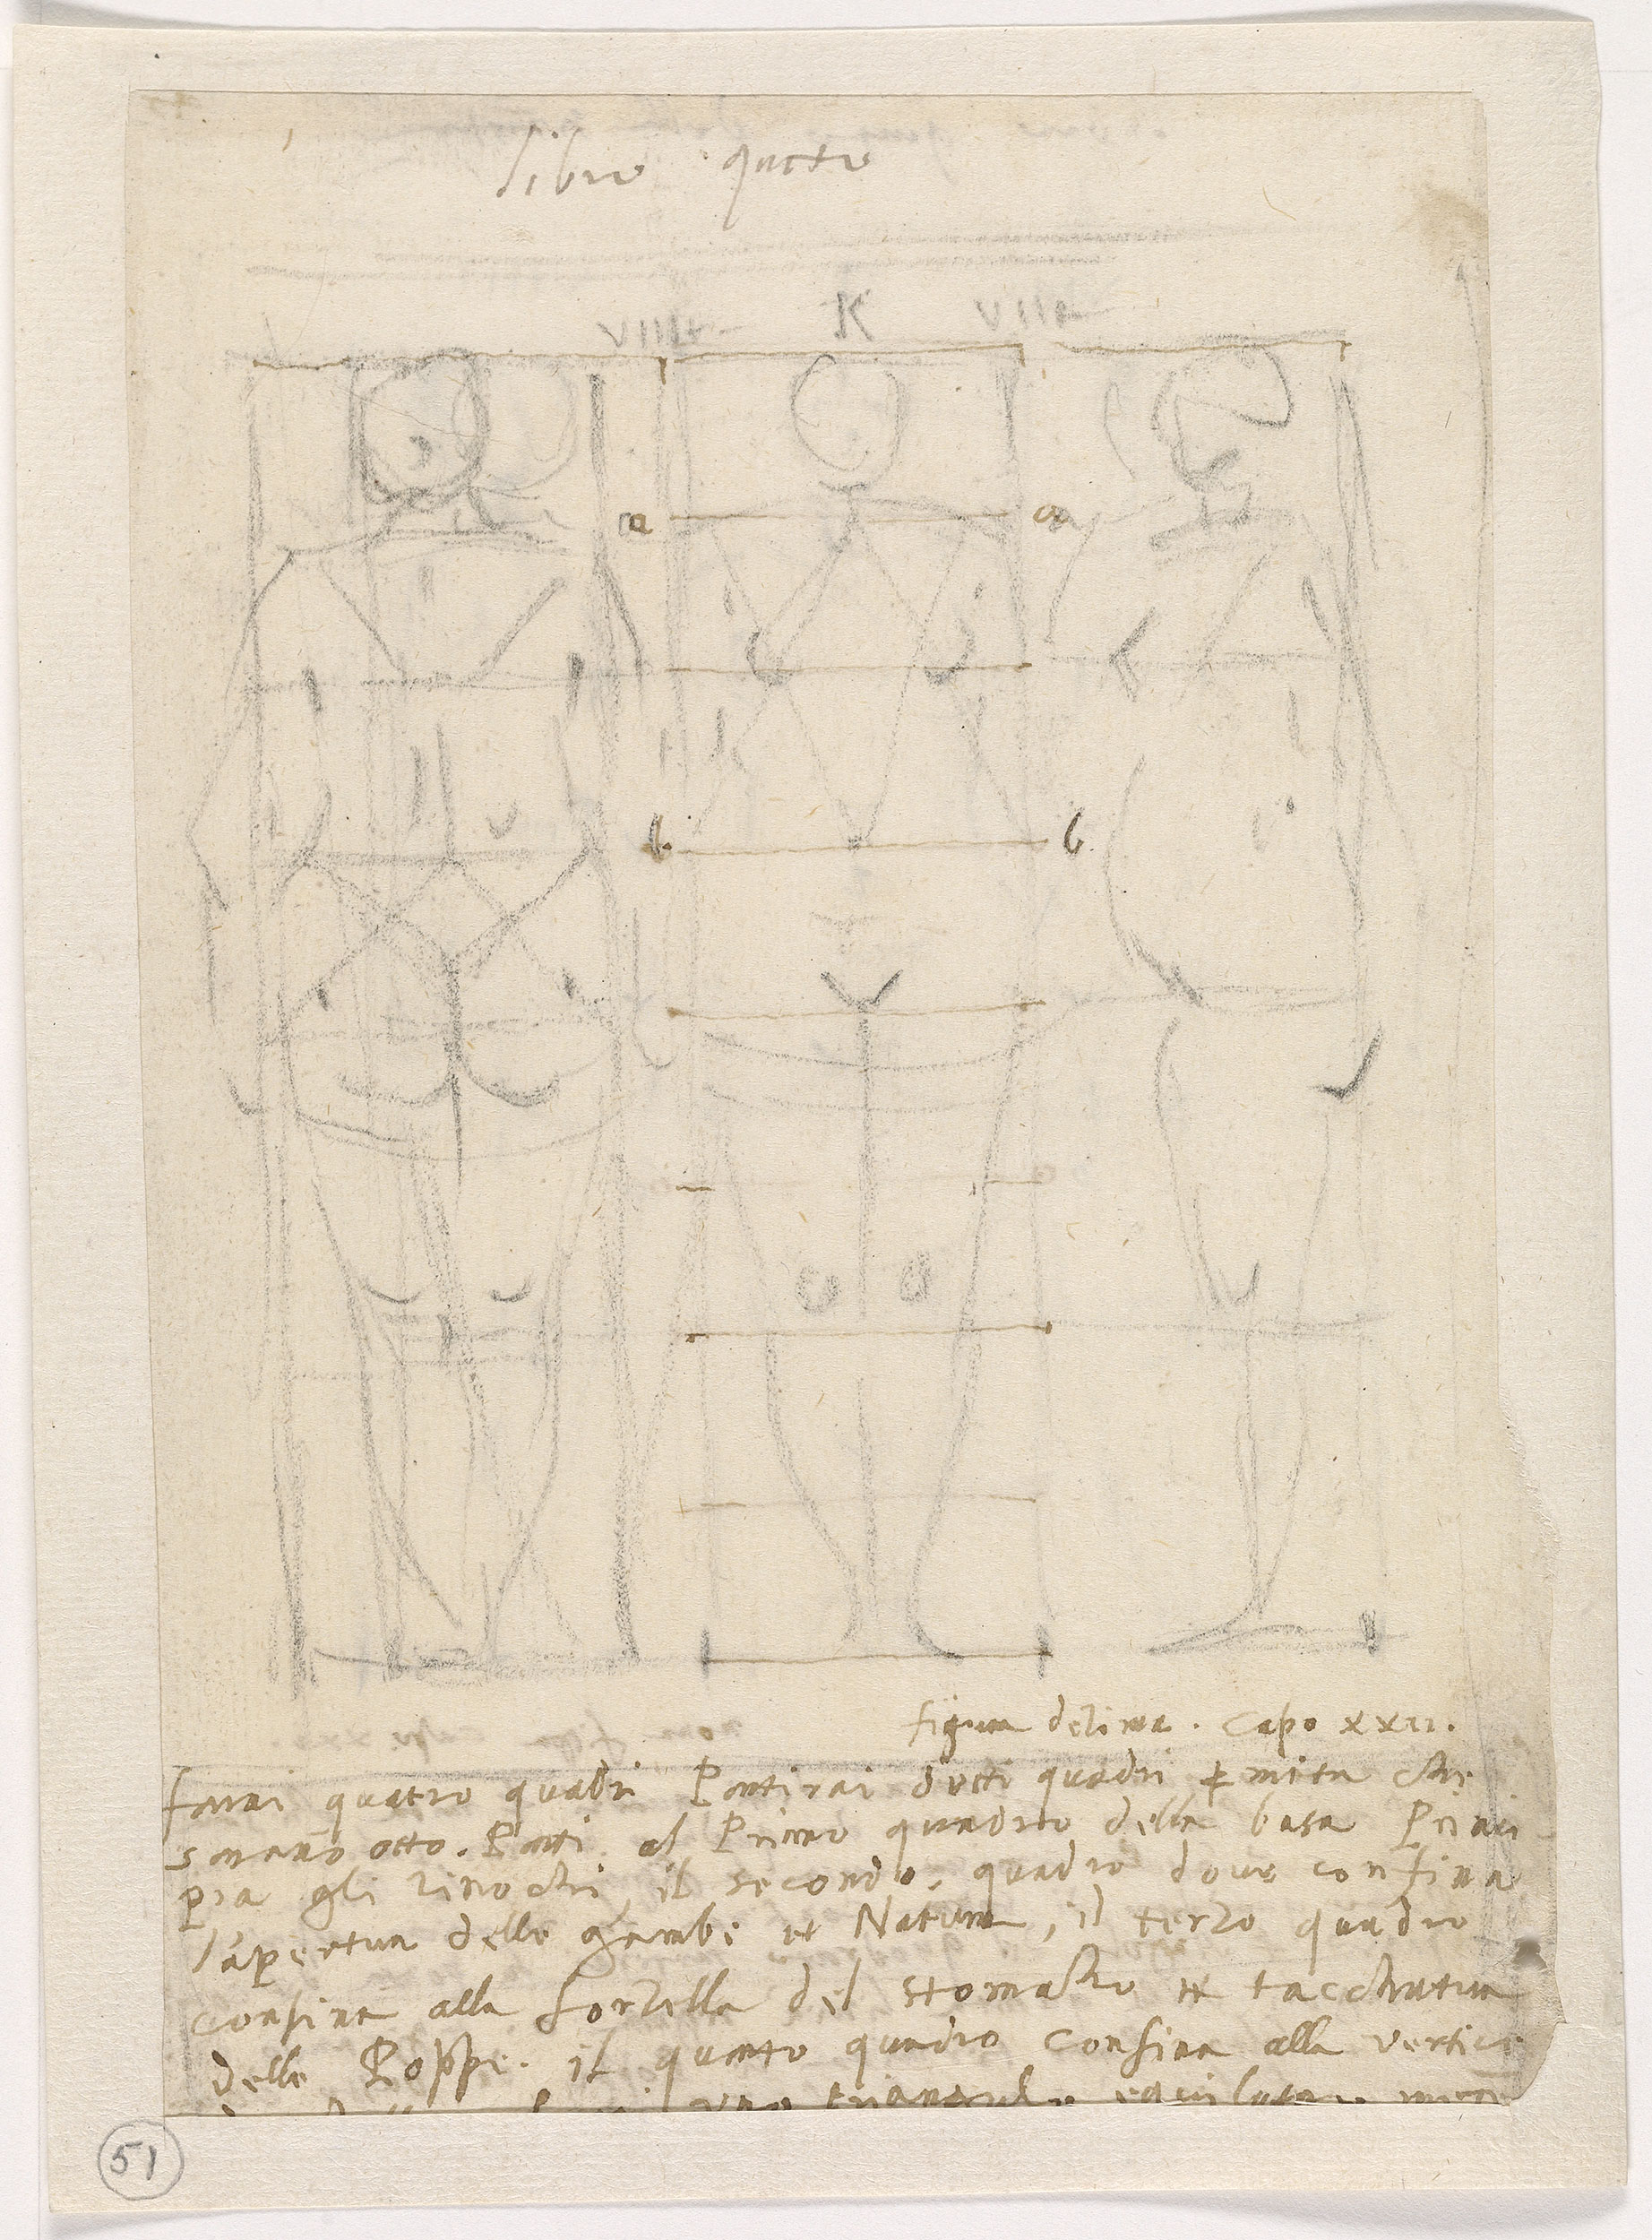 libro qucto
VIII K VII
a a
b. b.
figura decima. Capo XXII.
farai quatro quadri Partirai detti quadri p mita che
sarano otto. Parti. al Primo quadro della basa Princi
pia gli zinochi il secondo. quadro dove confina
l'apertura delle gambe et Natura, il terzo quadro
confina alla forzella del stomacho et tacchatura
delle Poppe. il quarto quadro confina alla vertice
triangulo equilatero
51